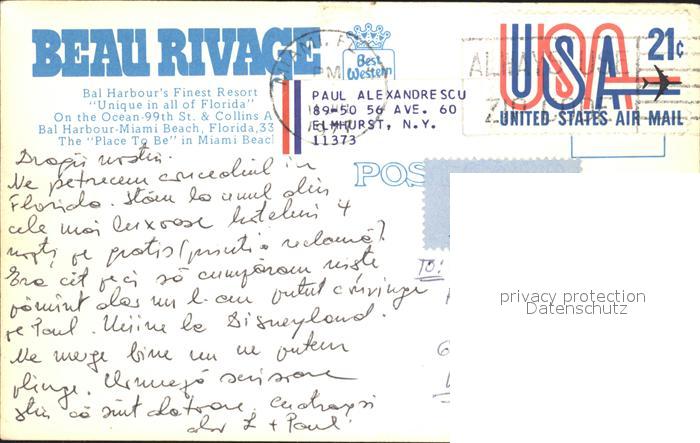 BEAU RIVAGE
Best Western
Bal Harbour's Finest Resort
"Unique in all of Florida"
On the Ocean-99th St. & Collins A
Bal Harbour-Miami Beach, Florida, 33
The "Place To Be" in Miami Beach
MIAMI, FL
PM
ALWAYS USE
ZIP
USA 21¢
UNITED STATES AIR MAIL
PAUL ALEXANDRESCU
89-50 56 AVE. 60
ELMHURST, N.Y.
11373
POS
Dragii noștri.
Ne petrecem concediul în
Florida. Stăm la unul din
cele mai luxoase hoteluri 4
nopți pe gratis (printr-o reclamă).
Era cît peci să cumpărăm niște
pămînt dar nu l-am putut convinge
pe Paul. Mîine la Disneyland.
Ne merge bine nu ne putem
plînge. Urmează scrisoare
știu că sînt datoare, cu dragi
dor + Paul
TO:
privacy protection
Datenschutz